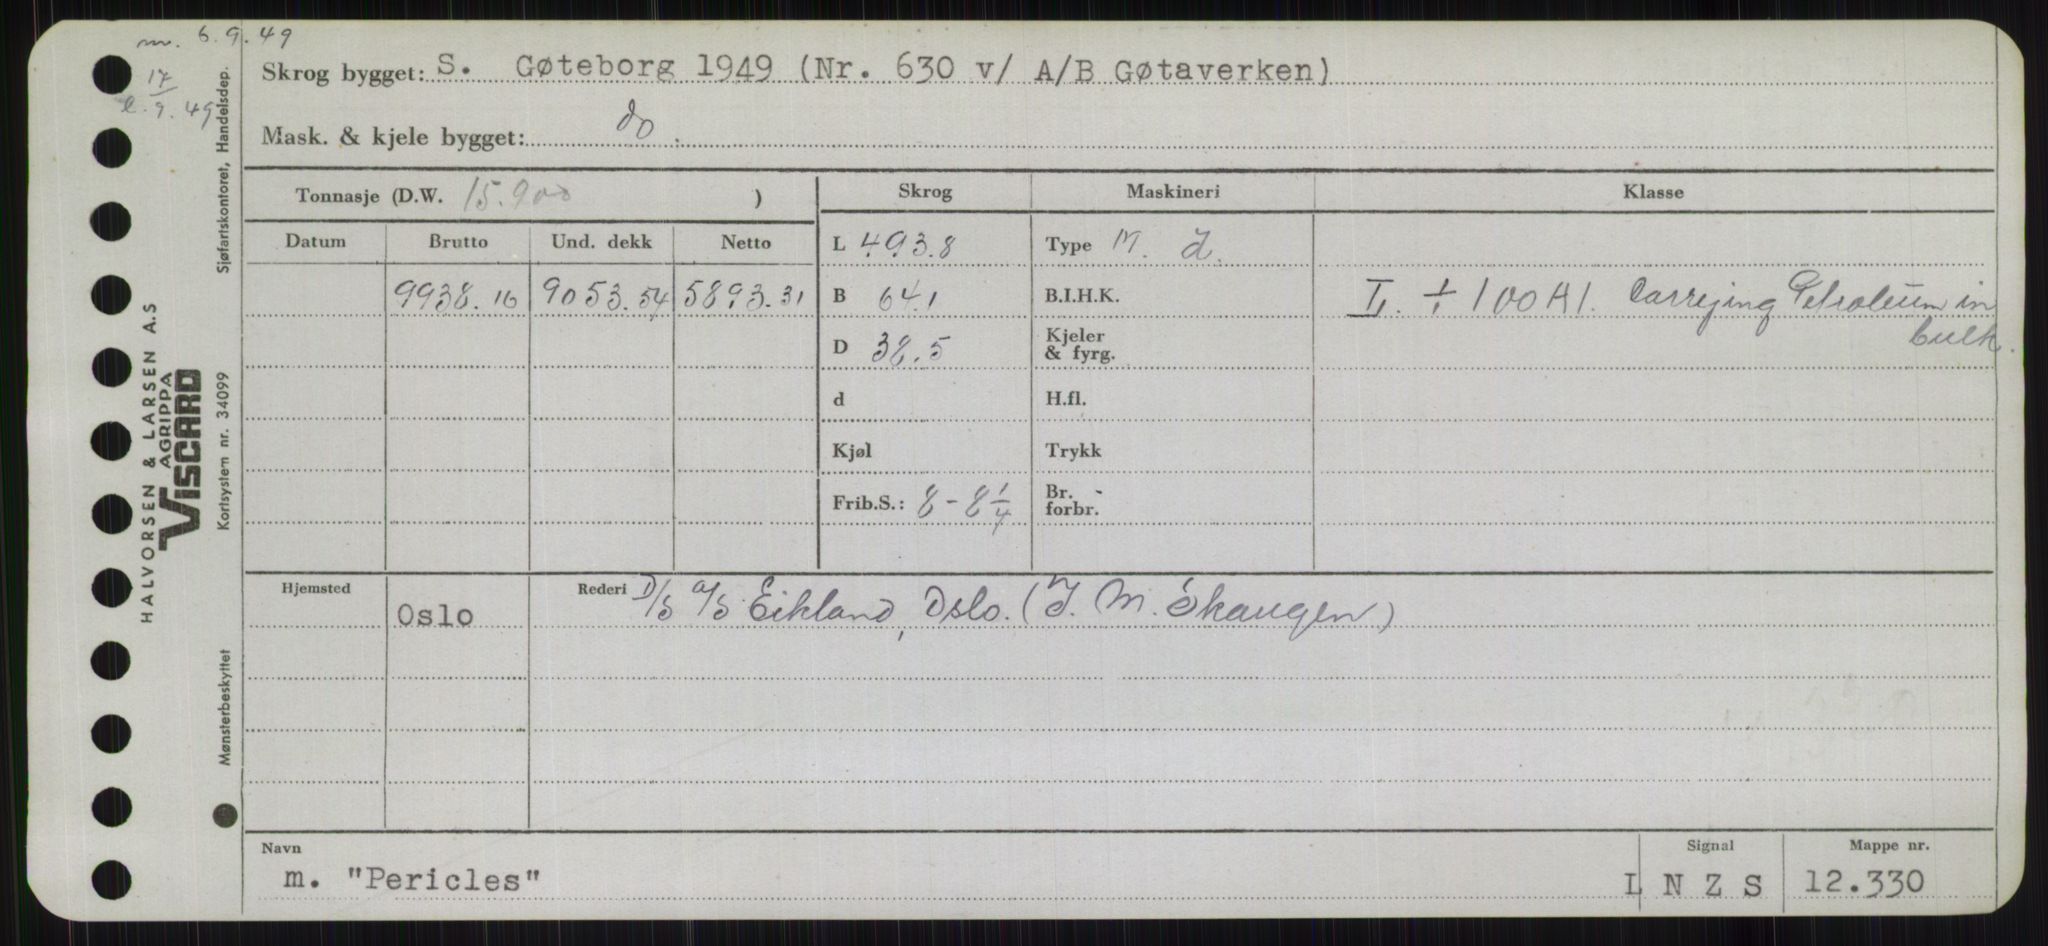 m. 6.9.49
17
e. 9. 49
Skrog bygget: S. Gøteborg 1949 (Nr. 630 v/ A/B Gøtaverken)
Mask. & kjele bygget: do.
Tonnasje (D.W. 15.900 )
Skrog Maskineri Klasse
Datum Brutto Und. dekk Netto
L 493.8 Type M.
9938.16 9053.54 5893.31
B 64.1 B.I.H.K.
L. + 100 A1. Carrying Petroleum in
bulk.
D 38.5 Kjeler
& fyrg.
d H.fl.
Kjøl Trykk
Frib.S.: 8 - 8 1/4 Br. -
forbr.
Hjemsted Oslo
Rederi D/S a/s Eikland, Oslo. (I. M. Skaugen)
Navn
m. "Pericles"
Signal
L N Z S
Mappe nr.
12.330
Sjøfartskontoret, Handelsdep.
HALVORSEN & LARSEN A.S
AGRIPPA
VISCARD
Kortsystem nr. 34099
Mønsterbeskyttet